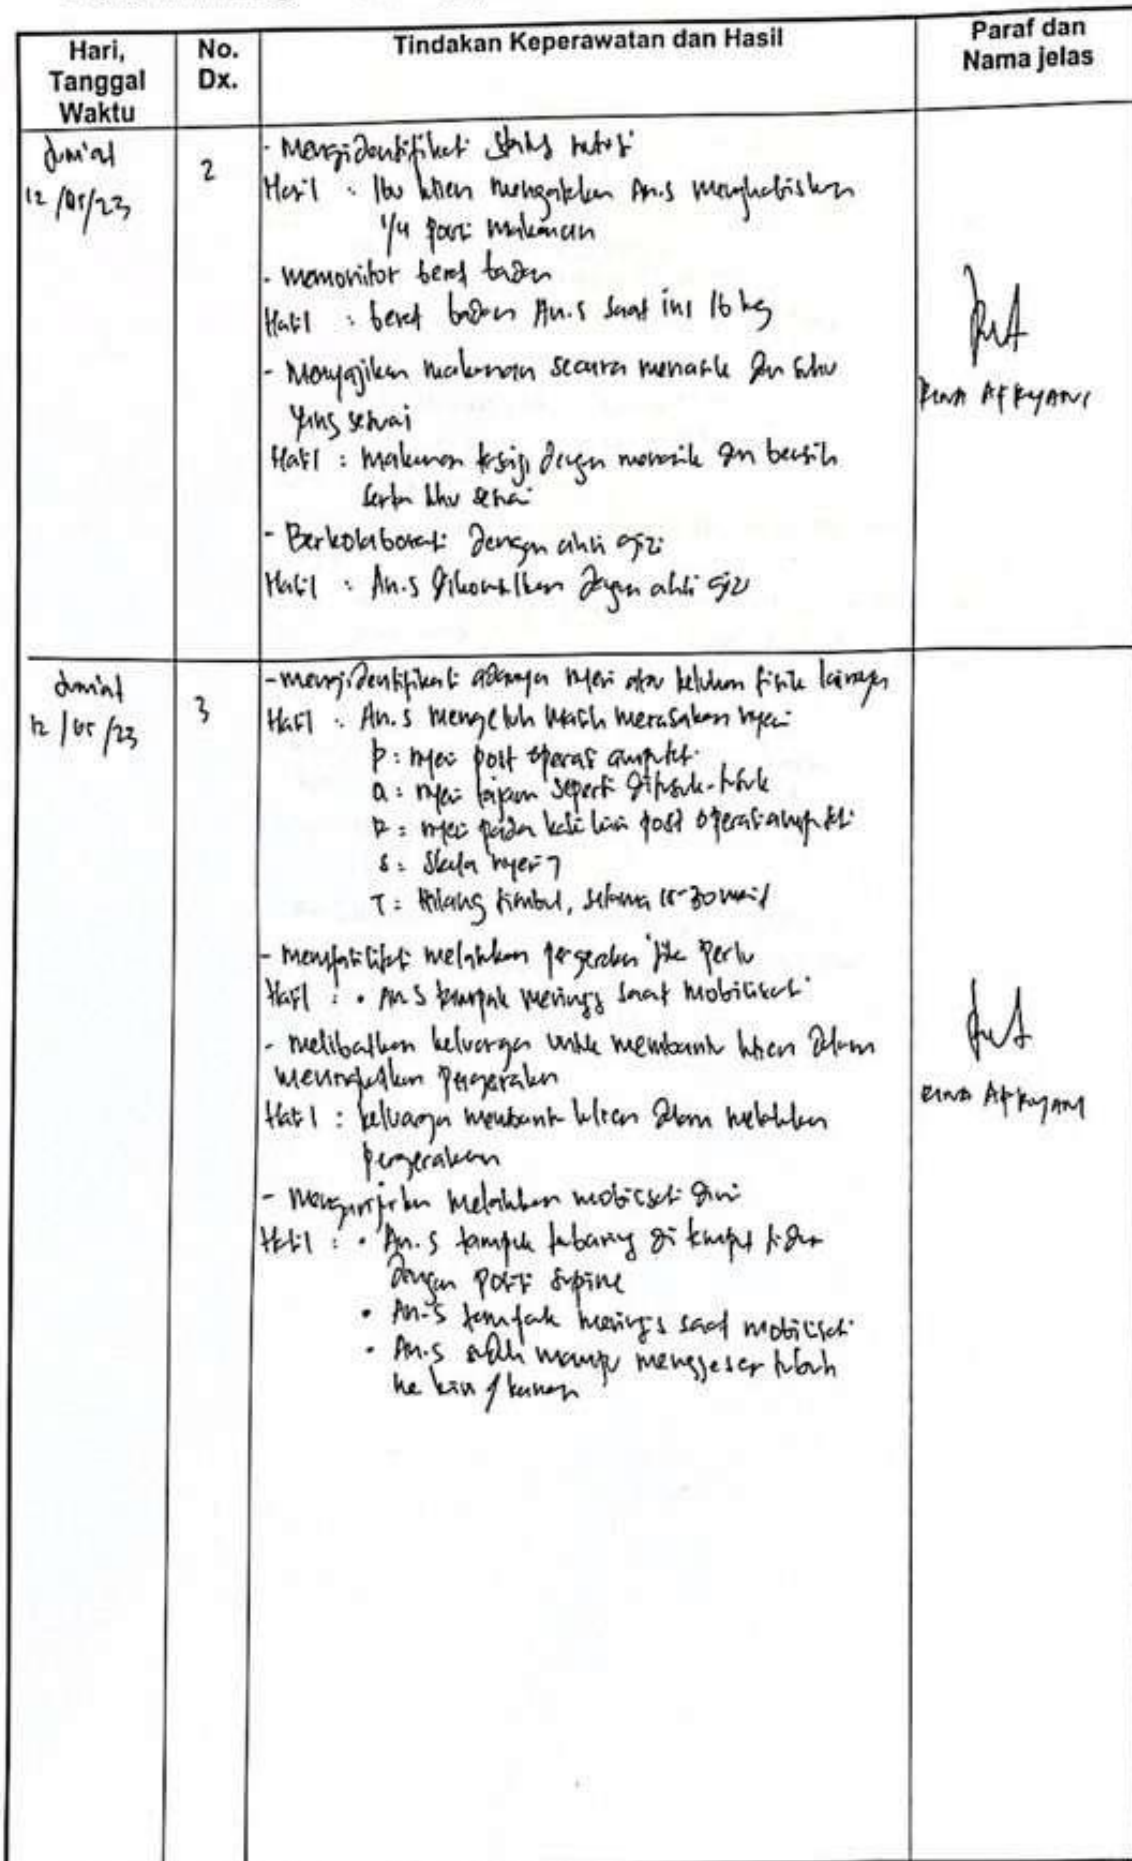 Hari,
Tanggal
Waktu
No.
Dx.
Tindakan Keperawatan dan Hasil
Paraf dan
Nama jelas
Jum'at
12/05/23
2
- Mengidentifikasi status nutrisi
Hasil : Ibu klien mengatakan An.S menghabiskan
1/4 porsi makanan
- memonitor berat badan
Hasil : berat badan An.S saat ini 16 kg
- Menyajikan makanan secara menarik dan suhu
yang sesuai
Hasil : makanan tersaji dengan menarik dan bersih
serta suhu sesuai
- Berkolaborasi dengan ahli gizi
Hasil : An.S dikonsulkan dengan ahli gizi
Jum'at
12/05/23
3
- mengidentifikasi adanya nyeri atau keluhan fisik lainnya
Hasil : An.S mengeluh masih merasakan nyeri
P : nyeri post operasi amputasi
Q : nyeri tajam seperti ditusuk-tusuk
R : nyeri pada kaki kiri post operasi amputasi
S : Skala nyeri 7
T : Hilang timbul, selama 15-30 menit
- memfasilitasi melakukan pergerakan jika perlu
Hasil : • An.S tampak meringis saat mobilisasi
- melibatkan keluarga untuk membantu klien dalam
meningkatkan pergerakan
Hasil : keluarga membantu klien dalam melakukan
pergerakan
- Menganjurkan melakukan mobilisasi dini
Hasil : • An.S tampak terbaring di tempat tidur
dengan posisi supine
• An.S tampak meringis saat mobilisasi
• An.S sudah mampu menggeser tubuh
ke kiri / kanan